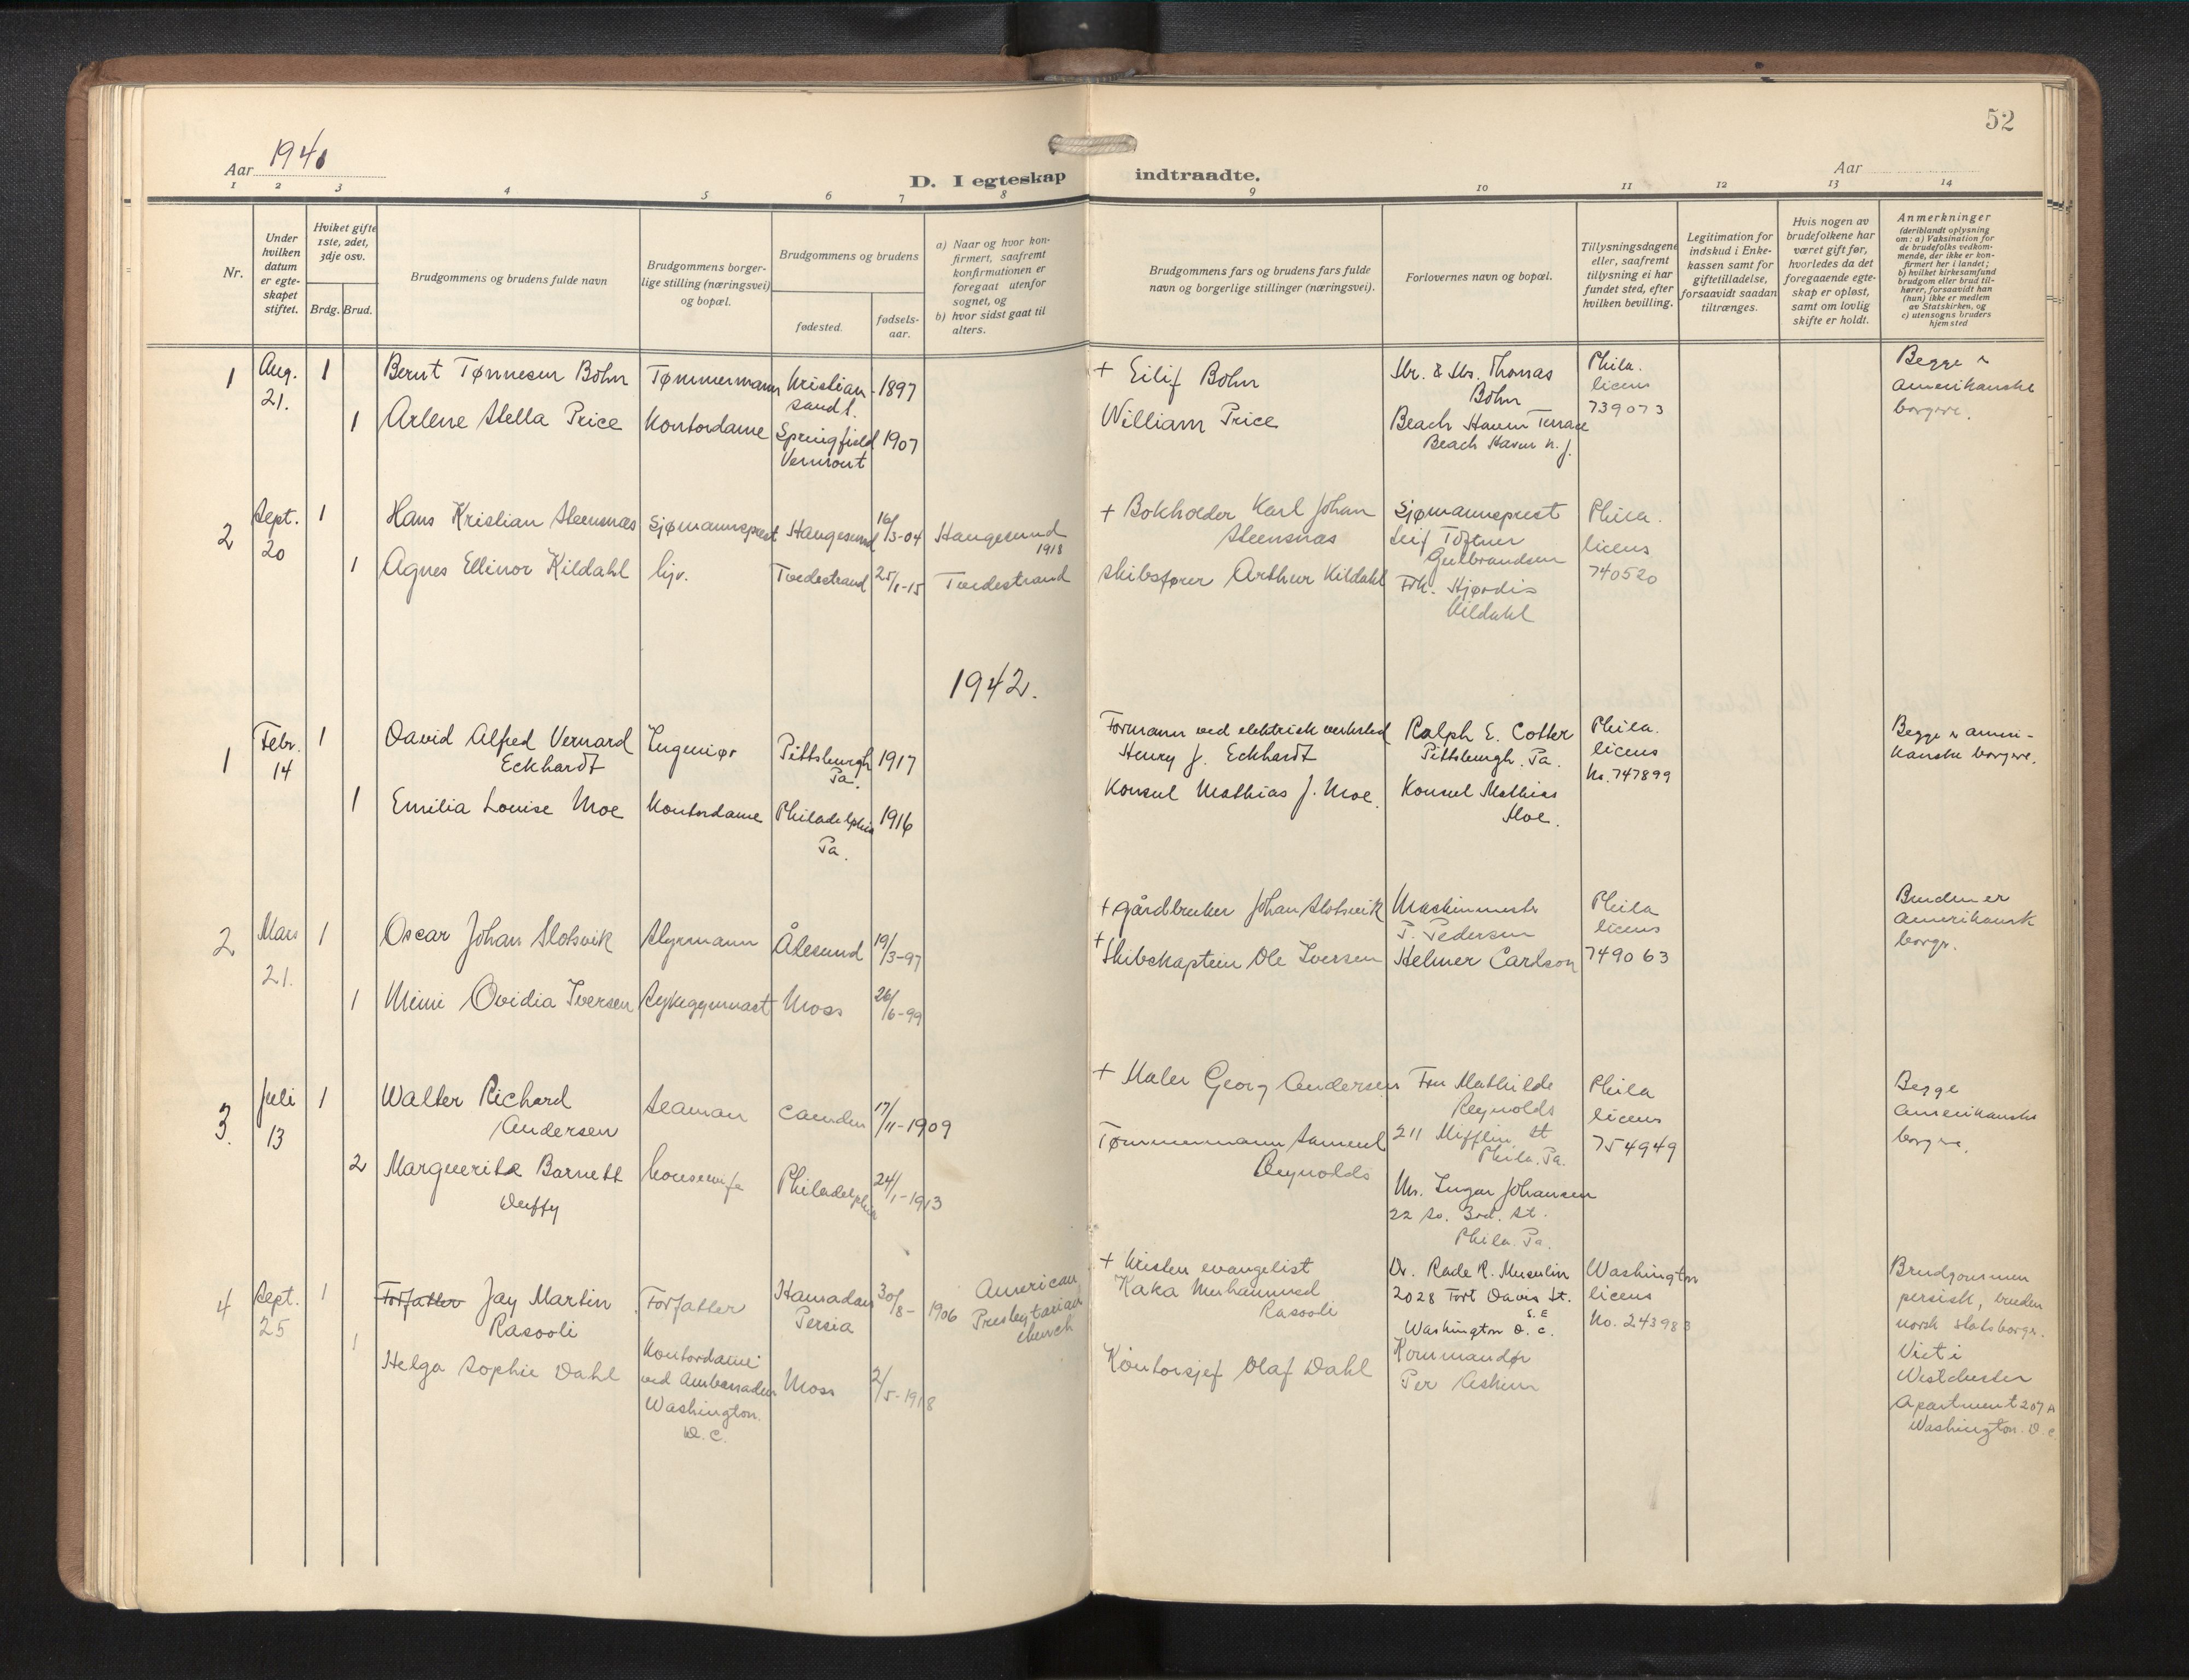 52
Aar 1941
Aar
D. I egteskap indtraadte.
1 2 3 4 5 6 7 8 9 10 11 12 13 14
Nr.
Under
hvilken
datum
er egte-
skapet
stiftet.
Hvilket gifte
1ste, 2det,
3dje osv.
Brdg. Brud.
Brudgommens og brudens fulde navn
Brudgommens borger-
lige stilling (næringsvei)
og bopæl.
Brudgommens og brudens
fødested.
fødsels-
aar.
a) Naar og hvor kon-
firmert, saafremt
konfirmationen er
foregaat utenfor
sognet, og
b) hvor sidst gaat til
alters.
Brudgommens fars og brudens fars fulde
navn og borgerlige stillinger (næringsvei).
Forlovernes navn og bopæl.
Tillysningsdagene
eller, saafremt
tillysning ei har
fundet sted, efter
hvilken bevilling.
Legitimation for
indskud i Enke-
kassen samt for
giftetilladelse,
forsaavidt saadan
tiltrænges.
Hvis nogen av
brudefolkene har
været gift før,
hvorledes da det
foregaaende egte-
skap er opløst,
samt om lovlig
skifte er holdt.
Anmerkninger
(deriblandt oplysning
om: a) Vaksination for
de brudefolks vedkom-
mende, der ikke er kon-
firmert her i landet;
b) hvilket kirkesamfund
brudgom eller brud til-
hører, forsaavidt han
(hun) ikke er medlem
av Statskirken, og
c) utensogns bruders
hjemsted
1
Aug.
21.
1
Bernt Tønnesen Bohn
Tømmermann
Kristian-
sand S.
1897
1
Arlene Stella Price
Kontordame
Springfield
Vermont
1907
+ Eilif Bohn
William Price
Mr. & Mrs. Thomas
Bohn
Beach Haven Terrace
Beach Haven N. J.
Phila.
licens
739073
Begge er
amerikanske
borgere.
2
Sept.
20
1
Hans Kristian Steensnæs
Sjømannsprest
Haugesund
16/3-04
Haugesund
1918
1
Agnes Ellinor Kildahl
hjv.
Tvedestrand
25/1-15
Tvedestrand
+ Bokholder Karl Johan
Steensnæs
Skibsfører Arthur Kildahl
Sjømannsprest
Leif Toftner
Gulbrandsen
Frk. Hjørdis
Kildahl
Phila.
licens
740520
1942.
1
Febr.
14
1
David Alfred Vernard
Eckhardt
Ingeniør
Pittsburgh
Pa.
1917
1
Emilia Louise Moe
Kontordame
Philadelphia
Pa.
1916
Formann ved elektrisk verksted
Henry J. Eckhardt
Konsul Mathias J. Moe.
Ralph E. Cotter
Pittsburgh. Pa.
Konsul Mathias
Moe.
Phila.
licens
No. 747899
Begge er ameri-
kanske borgere.
2
Mars
21.
1
Oscar Johan Slotsvik
Styrmann
Ålesund
19/3-97
1
Mimi Ovidia Iversen
Sykegymnast
Moss
26/6-99
+ gårdbruker Johan Slotsvik
+ Skibskaptein Ole Iversen
Maskinmestr
P. Pedersen
Helmer Carlson
Phila
licens
749063
Bruden er
amerikansk
borger.
3.
Juli
13
1
Walter Richard
Andersen
Seaman
Camden
17/11-1909
2
Marguerite Barnett
Duffy
housewife
Philadelphia
24/1-1913
+ Maler Georg Andersen
Tømmermann Samuel
Reynolds
Fru Mathilde
Reynolds
211 Mifflin St
Phila. Pa.
Mr. Ingar Johansen
22 So. 3rd. St.
Phila. Pa.
Phila
licens
754949
Begge
amerikanske
borgere.
4
Sept.
25
1
Forfatter Jay Martin
Rasooli
Forfatter
Hamadan
Persia
30/8-1906
American
Presbyterian
church
1
Helga Sophie Dahl
Kontordame
ved Ambassaden
Washington.
D.C.
Moss
2/5-1918
+ Kristen evangelist
Kaka Muhammed
Rasooli
Kontorsjef Olaf Dahl
Dr. Rade R. Musulin
2028 Fort Davis St.
S.E
Washington D. C.
Kommandør
Per Askim
Washington
licens
No. 243983
Brudgommen
persisk, bruden
norsk statsborger.
Viet i
Westchester
Apartment 207 A
Washington. D. C.